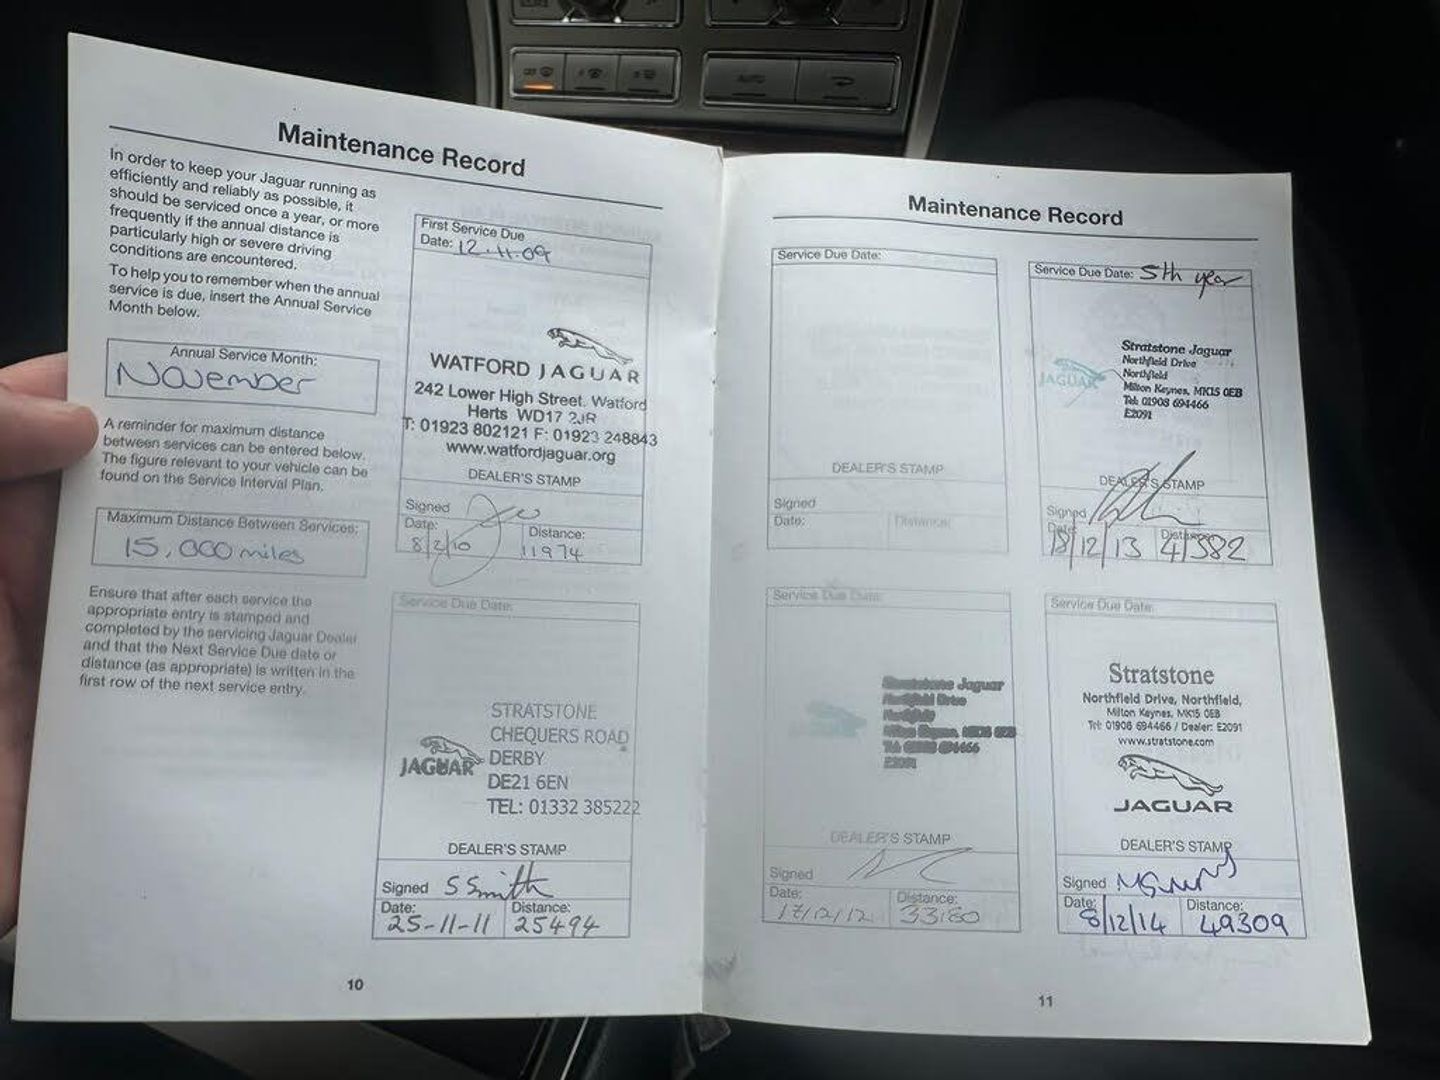 AUTO
Maintenance Record
In order to keep your Jaguar running as
efficiently and reliably as possible, it
should be serviced once a year, or more
frequently if the annual distance is
particularly high or severe driving
conditions are encountered.
To help you to remember when the annual
service is due, insert the Annual Service
Month below.
Annual Service Month:
November
A reminder for maximum distance
between services can be entered below.
The figure relevant to your vehicle can be
found on the Service Interval Plan.
Maximum Distance Between Services:
15,000 miles
Ensure that after each service the
appropriate entry is stamped and
completed by the servicing Jaguar Dealer
and that the Next Service Due date or
distance (as appropriate) is written in the
first row of the next service entry.
First Service Due
Date: 12.11.09
WATFORD JAGUAR
242 Lower High Street, Watford
Herts WD17 2JR
T: 01923 802121 F: 01923 248843
www.watfordjaguar.org
DEALER'S STAMP
Signed
Date: Distance:
8/2/10 11974
Service Due Date:
STRATSTONE
CHEQUERS ROAD
JAGUAR DERBY
DE21 6EN
TEL: 01332 385222
DEALER'S STAMP
Signed S Smith
Date: Distance:
25-11-11 25494
10
Maintenance Record
Service Due Date:
DEALER'S STAMP
Signed
Date: Distance:
Service Due Date: 5th year
JAGUAR
Stratstone Jaguar
Northfield Drive
Northfield
Milton Keynes, MK15 0EB
Tel: 01908 694466
E2091
DEALER'S STAMP
Signed
Date: Distance:
18/12/13 41382
Service Due Date:
Stratstone Jaguar
Northfield Drive
Northfield
Milton Keynes, MK15 0EB
Tel: 01908 694466
E2091
DEALER'S STAMP
Signed
Date: Distance:
17/12/12 33180
Service Due Date:
Stratstone
Northfield Drive, Northfield,
Milton Keynes, MK15 0EB
Tel: 01908 694466 / Dealer: E2091
www.stratstone.com
JAGUAR
DEALER'S STAMP
Signed
Date: Distance:
8/12/14 49309
11